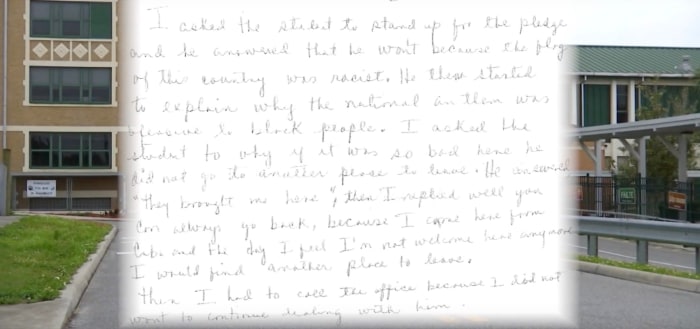 I asked the student to stand up for the pledge
and he answered that he won't because the flag
of this country was racist. He then started
to explain why the national anthem was
ofensive to black people. I asked the
student to why if it was so bad here he
did not go to another place to leave. He answered
"they brought me here", then I replied well you
can always go back, because I came here from
Cuba and the day I feel I'm not welcome here anymore
I would find another place to leave.
then I had to call the office because I did not
want to continue dealing with him.